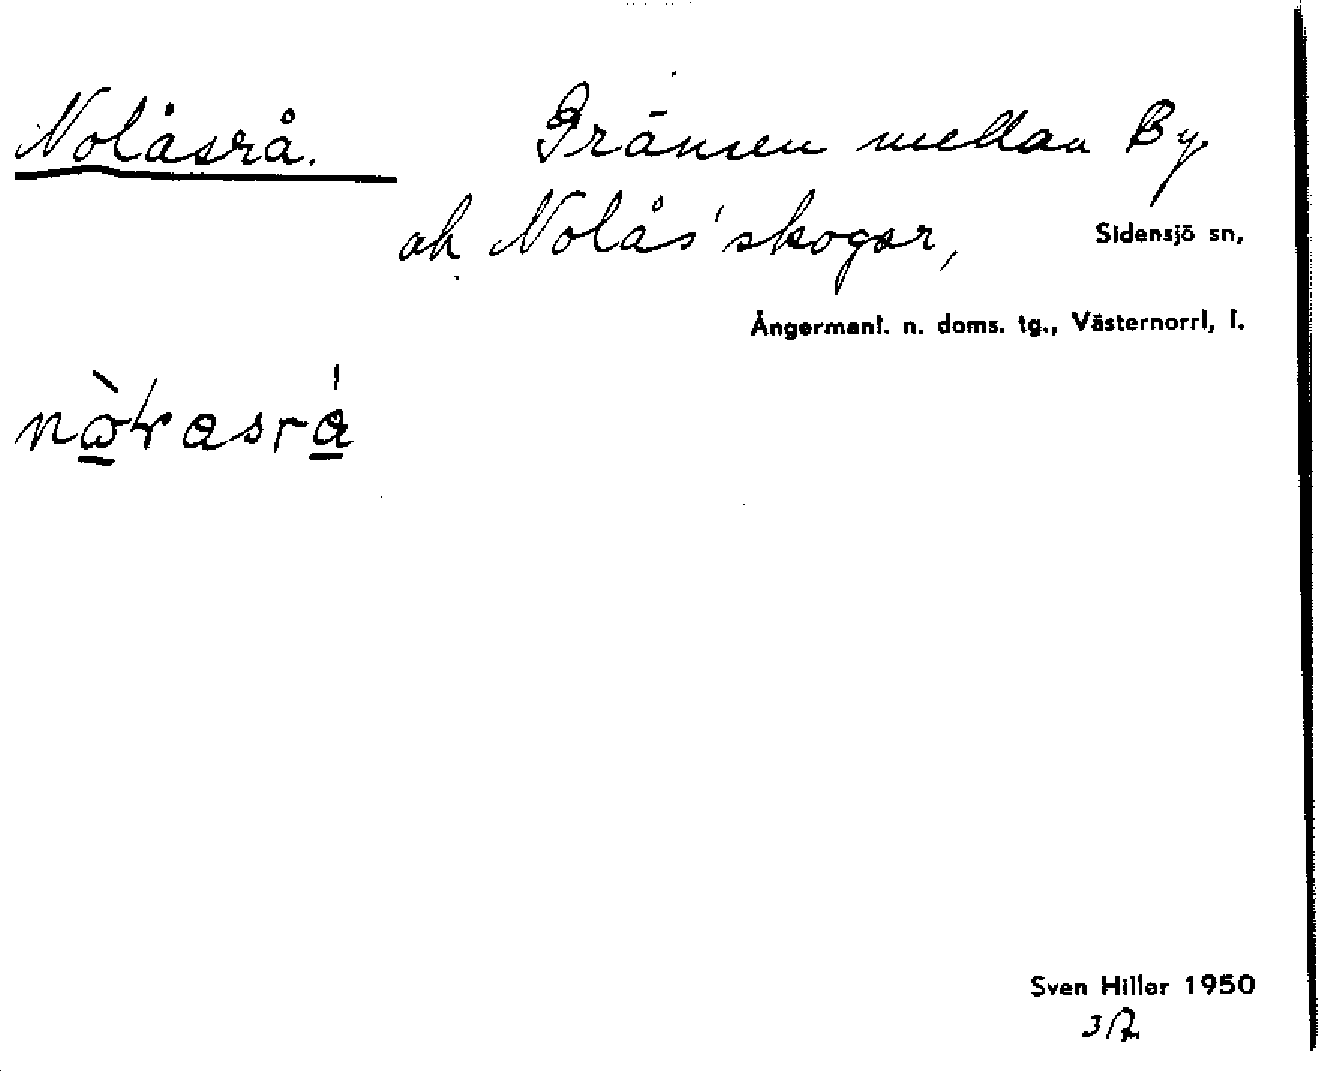 Nolåsrå. Gränsen mellan By
ok Nolås' skogar, Sidensjö sn,
Ångermanl. n. doms. tg., Västernorrl, l.
Sven Hillar 1950